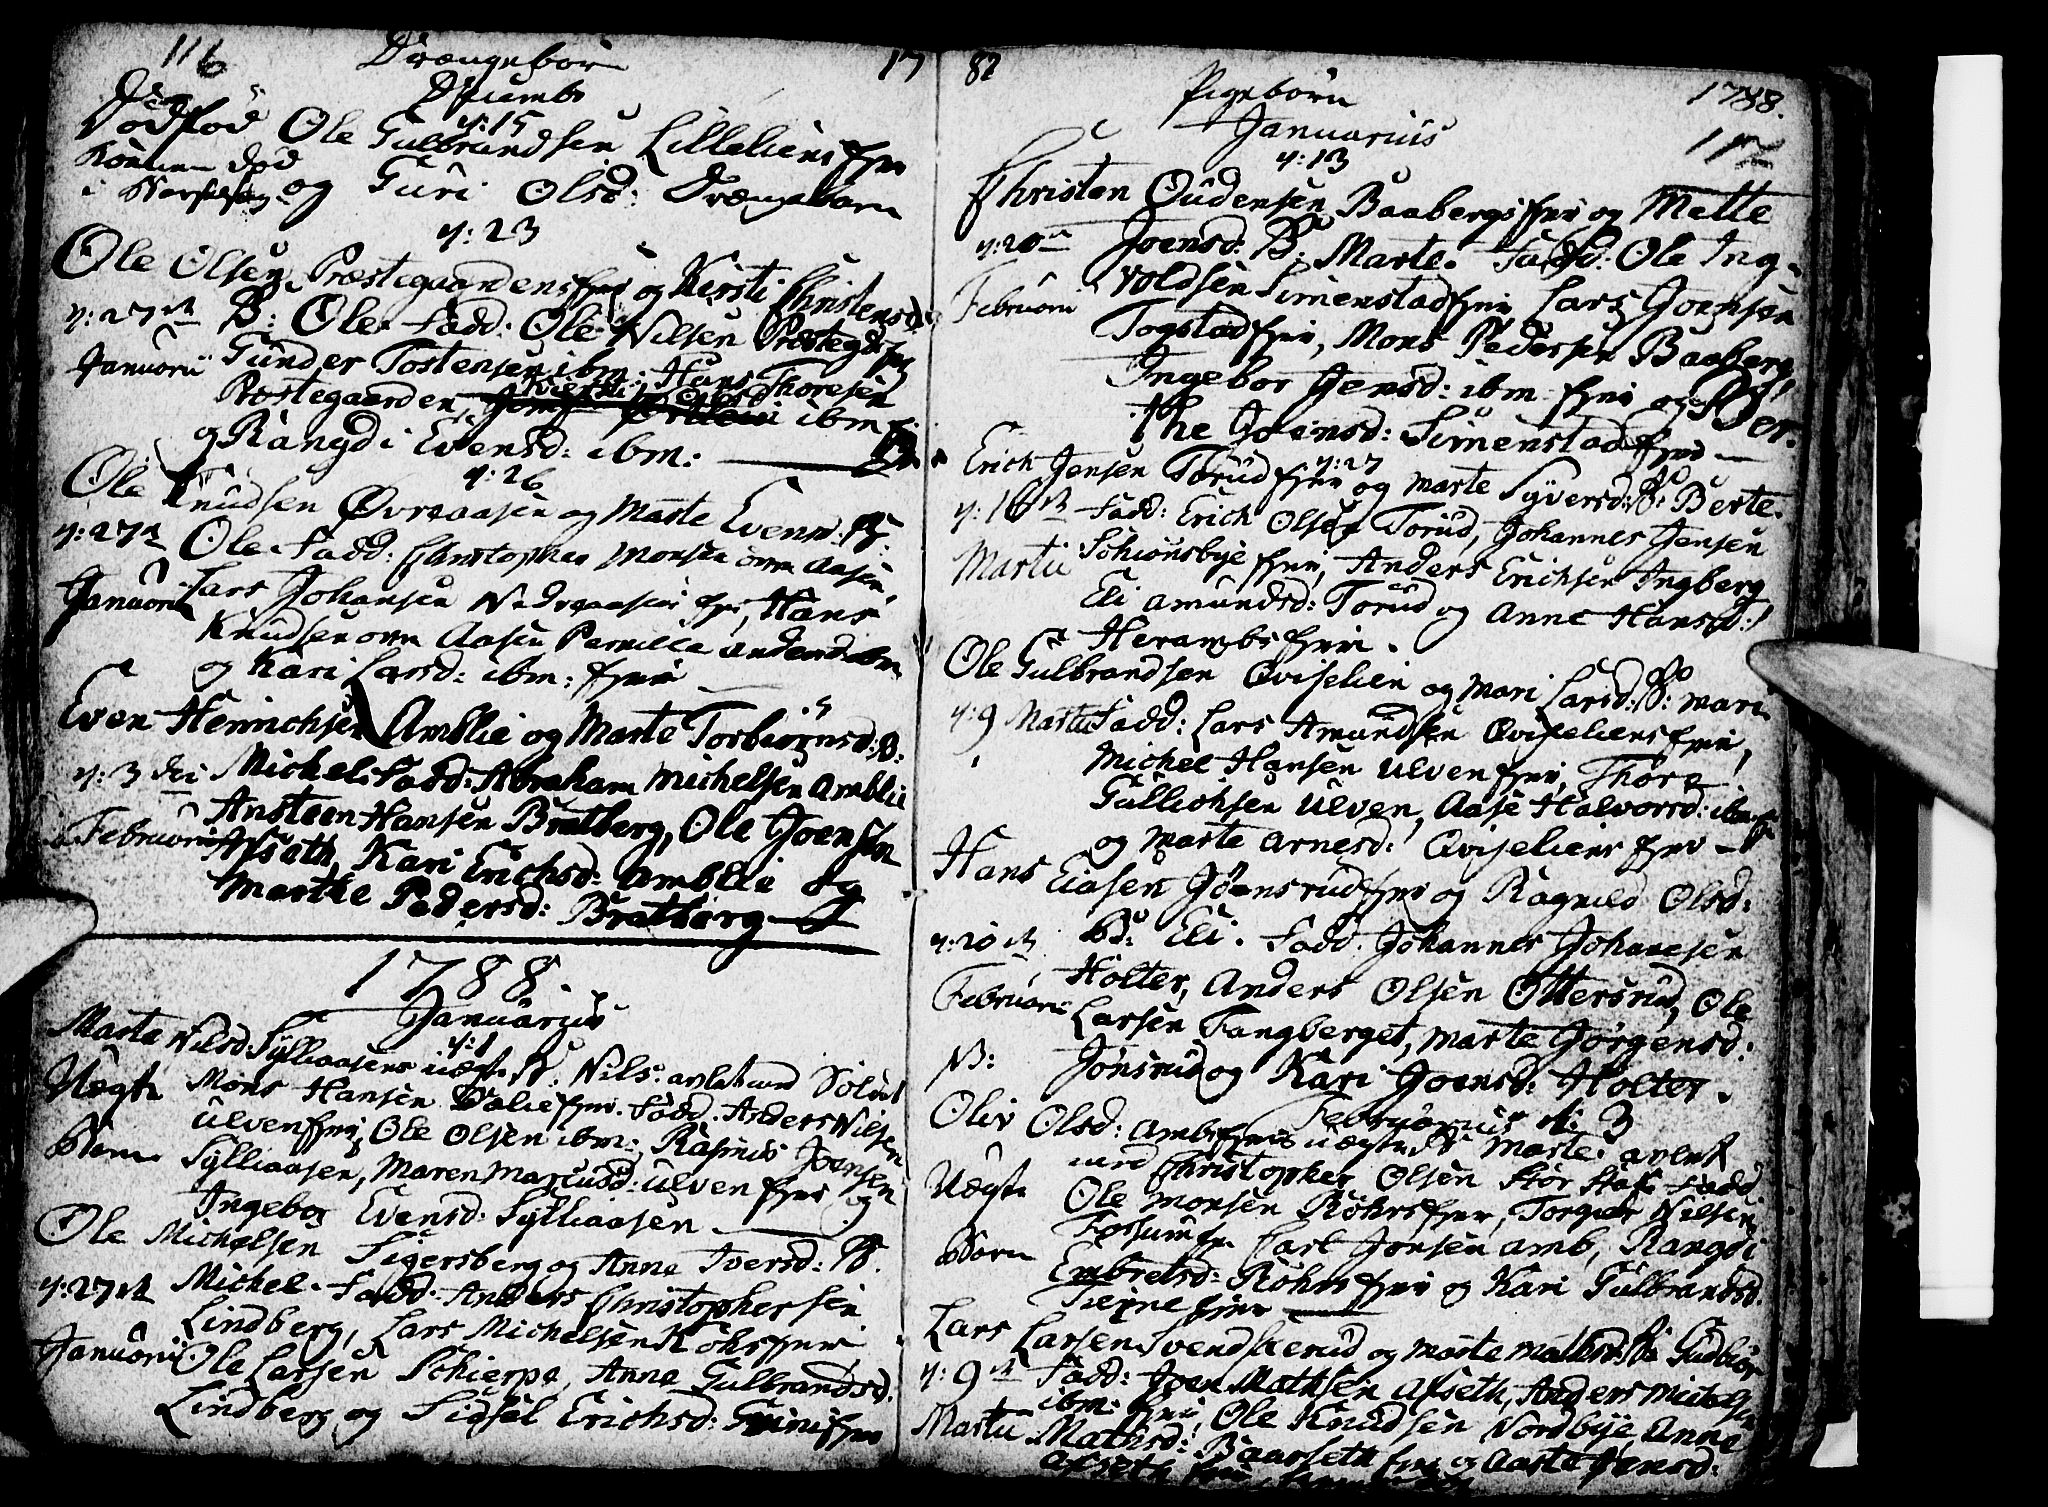 116 Drængebør 17
Dscembr
Dødfød Ole Gulbrandsen Lilleliens fyer
y: 15
Kommen død og Guri Olsd: Drængebarn
i Barselseng
y: 23
Ole Olsen Præstegaardens fyer og Kirsti Christensd:
y: 27de B: Ole. Fadd: Ole Nilsen Præstegds fyer
Januarii Gunder Tostensen ibm: Hans Thoresen
Præstegaarden, ibm f:
og Rangdi Evensd: ibm:
y: 26
Ole Knudsen Øvreaasen og Marte Evensd: B:
y: 27de Ole. Fadd: Christopher Monsen øvre Aasen,
Januarii Lars Johansen Nedreaasen fyer, Hans
Knudsen øvre Aasen Pernille Andersd: ibm
og Kari Larsd: ibm: fyer
Even Henrichsen Amblie og Marte Torbiørnsd: B:
y: 3 die Michel. Fadd: Abraham Michelsen Amblie
Ansteen Hansen Bratberg, Ole Joensen
Februarii Afseth, Kari Erichsd: Amblie og
Marthe Pedersd: Bratberg
1788.
Januarius
y: 1
Marte Nilsd: Sylliaasens uægte B: Nils. avlet med Soldat
Uægte Mons Hansen Dalie fyer. Fadd. Anders Nilsen
Ulven fyer, Ole Olsen ibm: Rasmus Joensen
Barn Sylliaasen, Maren Marcusd: Ulven fyer og
Ingebor Evensd: Sylliaasen
Ole Michelsen Sigersberg og Anne Iversd: B.
y: 27de Michel. Fadd: Anders Christophersen
Lindberg, Lars Michelsen Kohs fyer
Januarii Ole Larsen Schierpe, Anne Gulbrandsd:
Lindberg og Sidsel Erichsd: fyer
87 Pigebørn 1788.
Januarius 117
y: 13
Christen Oudensen Baabergs fyer og Mette
y: 20de Joensd: B: Marte. Fadd: Ole Ing-
Februarii voldsen Simenstad fyer, Lars Joensen
Togstad fyer, Mons Pedersen Baaberg,
Ingebor Jensd: ibm fyer og Ber-
the Joensd: Simenstad fyer
y: 27
Erich Jensen Torud fyer og Marte Syversd: B: Berte.
y: 16de Fadd: Erich Olsen Torud, Johannes Jensen
Martii Schionsbye fyer, Anders Erichsen Ingberg
Eli Amundsd: Torud og Anne Hansd:
Herambs fyer.
Ole Gulbrandsen Qviselien og Mari Larsd: B: Mari
y: 9 Martii Fadd: Lars Amundsen Qviseliens fyer,
Michel Hansen Ulven fyer, Thore
Gullichsen Ulven, Aase Halvorsd: ibm f:
og Marte Arnesd: Qviseliens fyer
Hans Eiasen Jønsrud fyer og Ragnild Olsd:
y: 20de B: Eli. Fadd. Johannes Johannesen
Holter, Anders Olsen Ottersrud, Ole
Februarii Larsen Fangberget, Marte Jørgensd:
N: Jønsrud og Kari Joensd: Holter.
Februarius d: 3
Oliv Olsd: Ambs fyer uægte B: Marte. avlet
med Christopher Olsen Stor Fadd
Uægte Ole Monsen Røhrs fyer, Torger Nilsen
Fossum fyer Carl Jonsen Amb, Rangdi
Barn Embretsd: Røhrs fyer og Kari Gulbrandsd.
Teigne fyer
Lars Larsen Svendserud og Marte Mathisd: B: Gudbiør
y: 9de Fadd: Joen Mathsen Afseth, Anders Michelsen
ibm: fyer, Ole Knudsen Nordbye, Anne
Martii Mathisd: Baarseth fyer og Aaste Jensd:
Afseth fyer